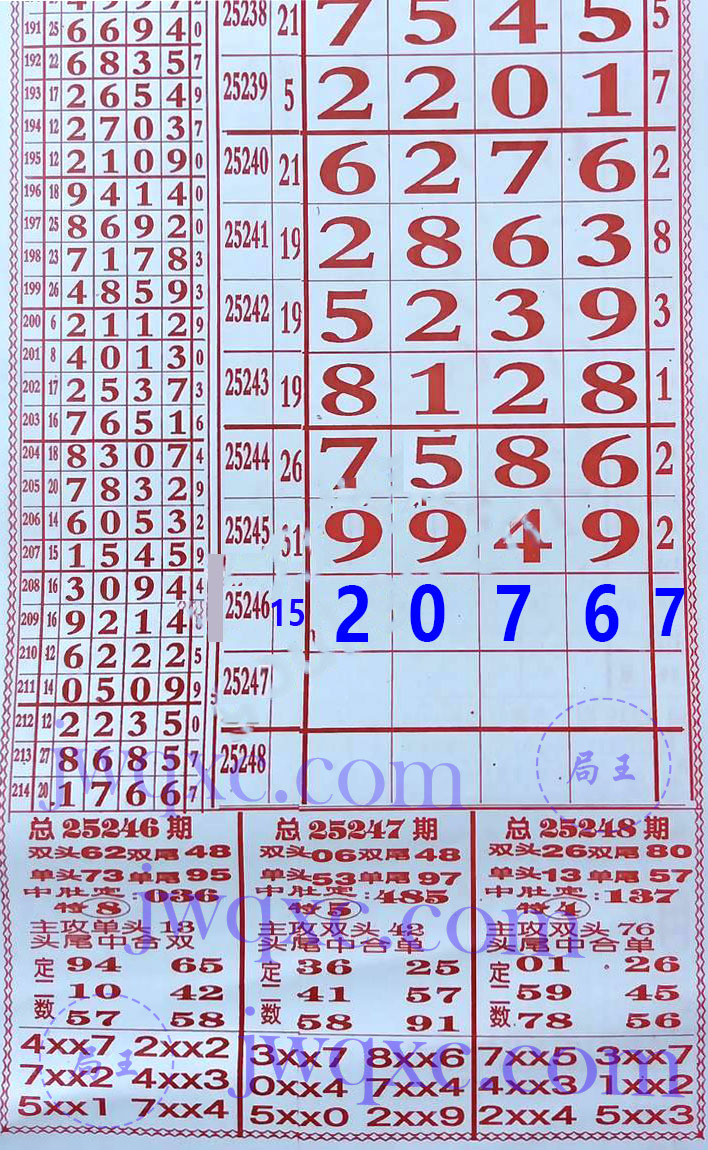 191 25 6 6 9 4 0
192 22 6 8 3 5 7
193 17 2 6 5 4 9
194 12 2 7 0 3 7
195 12 2 1 0 9 0
196 18 9 4 1 4 0
197 25 8 6 9 2 0
198 23 7 1 7 8 3
199 26 4 8 5 9 3
200 6 2 1 1 2 9
201 8 4 0 1 3 0
202 17 2 5 3 7 3
203 16 7 6 5 1 6
204 18 8 3 0 7 4
205 20 7 8 3 2 9
206 14 6 0 5 3 2
207 15 1 5 4 5 9
208 16 3 0 9 4 4
209 16 9 2 1 4
210 12 6 2 2 2 5
211 14 0 5 0 9 9
212 12 2 2 3 5 0
213 27 8 6 8 5 7
214 20 1 7 6 6 7
25238 21 7 5 4 5 5
25239 5 2 2 0 1 7
25240 21 6 2 7 6 2
25241 19 2 8 6 3 8
25242 19 5 2 3 9 3
25243 19 8 1 2 8 1
25244 26 7 5 8 6 2
25245 31 9 9 4 9 2
25246 15 2 0 7 6 7
25247
25248
jwqxc.com
局王
总25246期
双头62双尾48
单头73单尾95
中肚宽:036
特8
主攻单头18
头尾中合双
定二数
94 65
10 42
57 58
4xx7 2xx2
7xx2 4xx3
5xx1 7xx4
总25247期
双头06双尾48
单头53单尾97
中肚宽:485
特5
主攻双头42
头尾中合单
定二数
36 25
41 57
58 91
3xx7 8xx6
0xx4 7xx4
5xx0 2xx9
总25248期
双头26双尾80
单头13单尾57
中肚宽:137
特4
主攻双头76
头尾中合单
定二数
01 26
59 45
78 56
7xx5 3xx7
4xx3 1xx2
2xx4 5xx3
jwqxc.com
局王
jwqxc.com